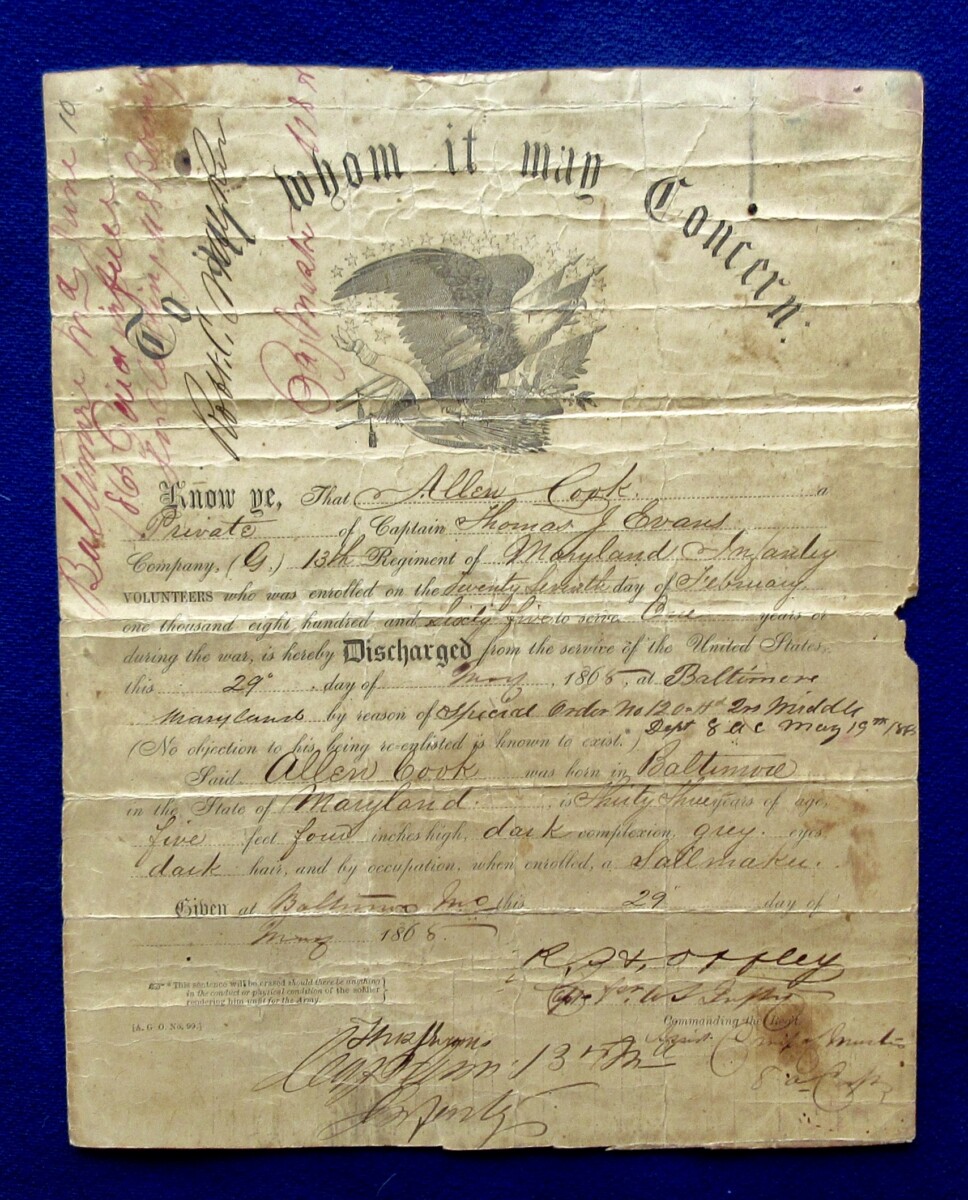 To whom it may Concern.
Baltimore Md June 10
1865 Paid in full
Paymaster U S A
Know ye, That Allen Cook a
Private of Captain Thomas J Evans
Company, (G.) 13th Regiment of Maryland Infantry
VOLUNTEERS who was enrolled on the twenty seventh day of February
one thousand eight hundred and sixty five to serve One years or
during the war, is hereby Discharged from the service of the United States,
this 29" day of May, 1865, at Baltimore
Maryland by reason of Special Order No 120 Hd Qrs Middle
Dept 8 A C May 19th 1865
(No objection to his being re-enlisted is known to exist.*)
Said Allen Cook was born in Baltimore
in the State of Maryland, is Thirty Three years of age,
five feet four inches high, dark complexion, grey eyes,
dark hair, and by occupation, when enrolled, a Sailmaker.
Given at Baltimore Md this 29" day of
May 1865
Offley
Capt 1st U S Infty
* This sentence will be erased should there be anything
in the conduct or physical condition of the soldier
rendering him unfit for the Army.
[A. G. O. No. 99.]
Commanding the
Mustr
8" A Corps
Thos J Evans
Capt Comm 13th Md
Infantry